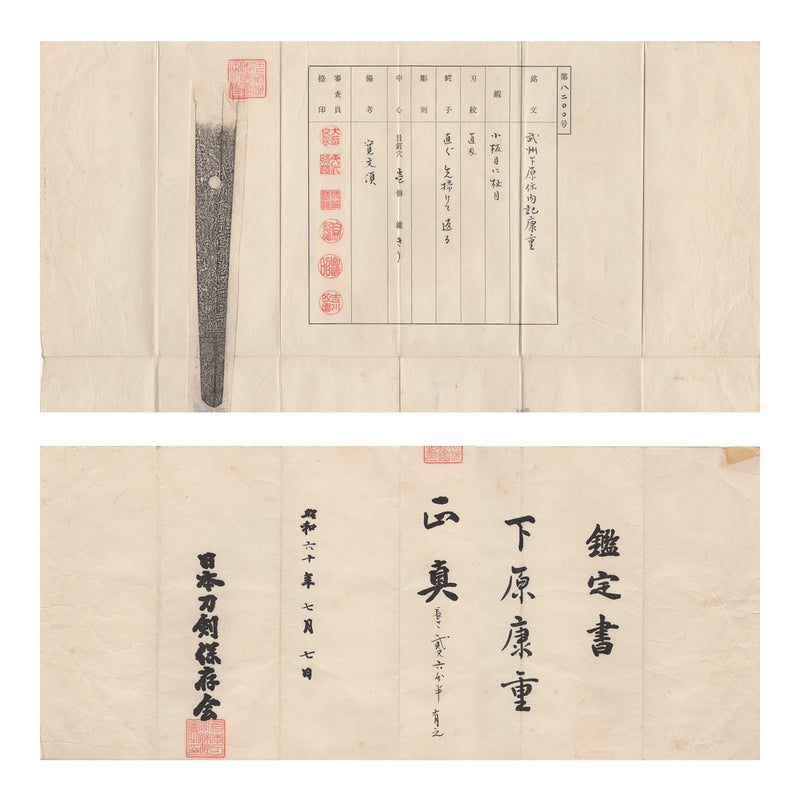 第八二〇〇号
銘文 武州下原住内記康重
鍛 小板目に柾目
刃紋 直刃
鋩子 直ぐ先掃りて返る
彫刻
中心 目釘穴 壱個 鑢 きり
備考 寛文頃
審査員控印
鑑定書
下原康重
正真
長さ 貳尺六分半 有之
昭和六十年七月七日
日本刀剣保存会